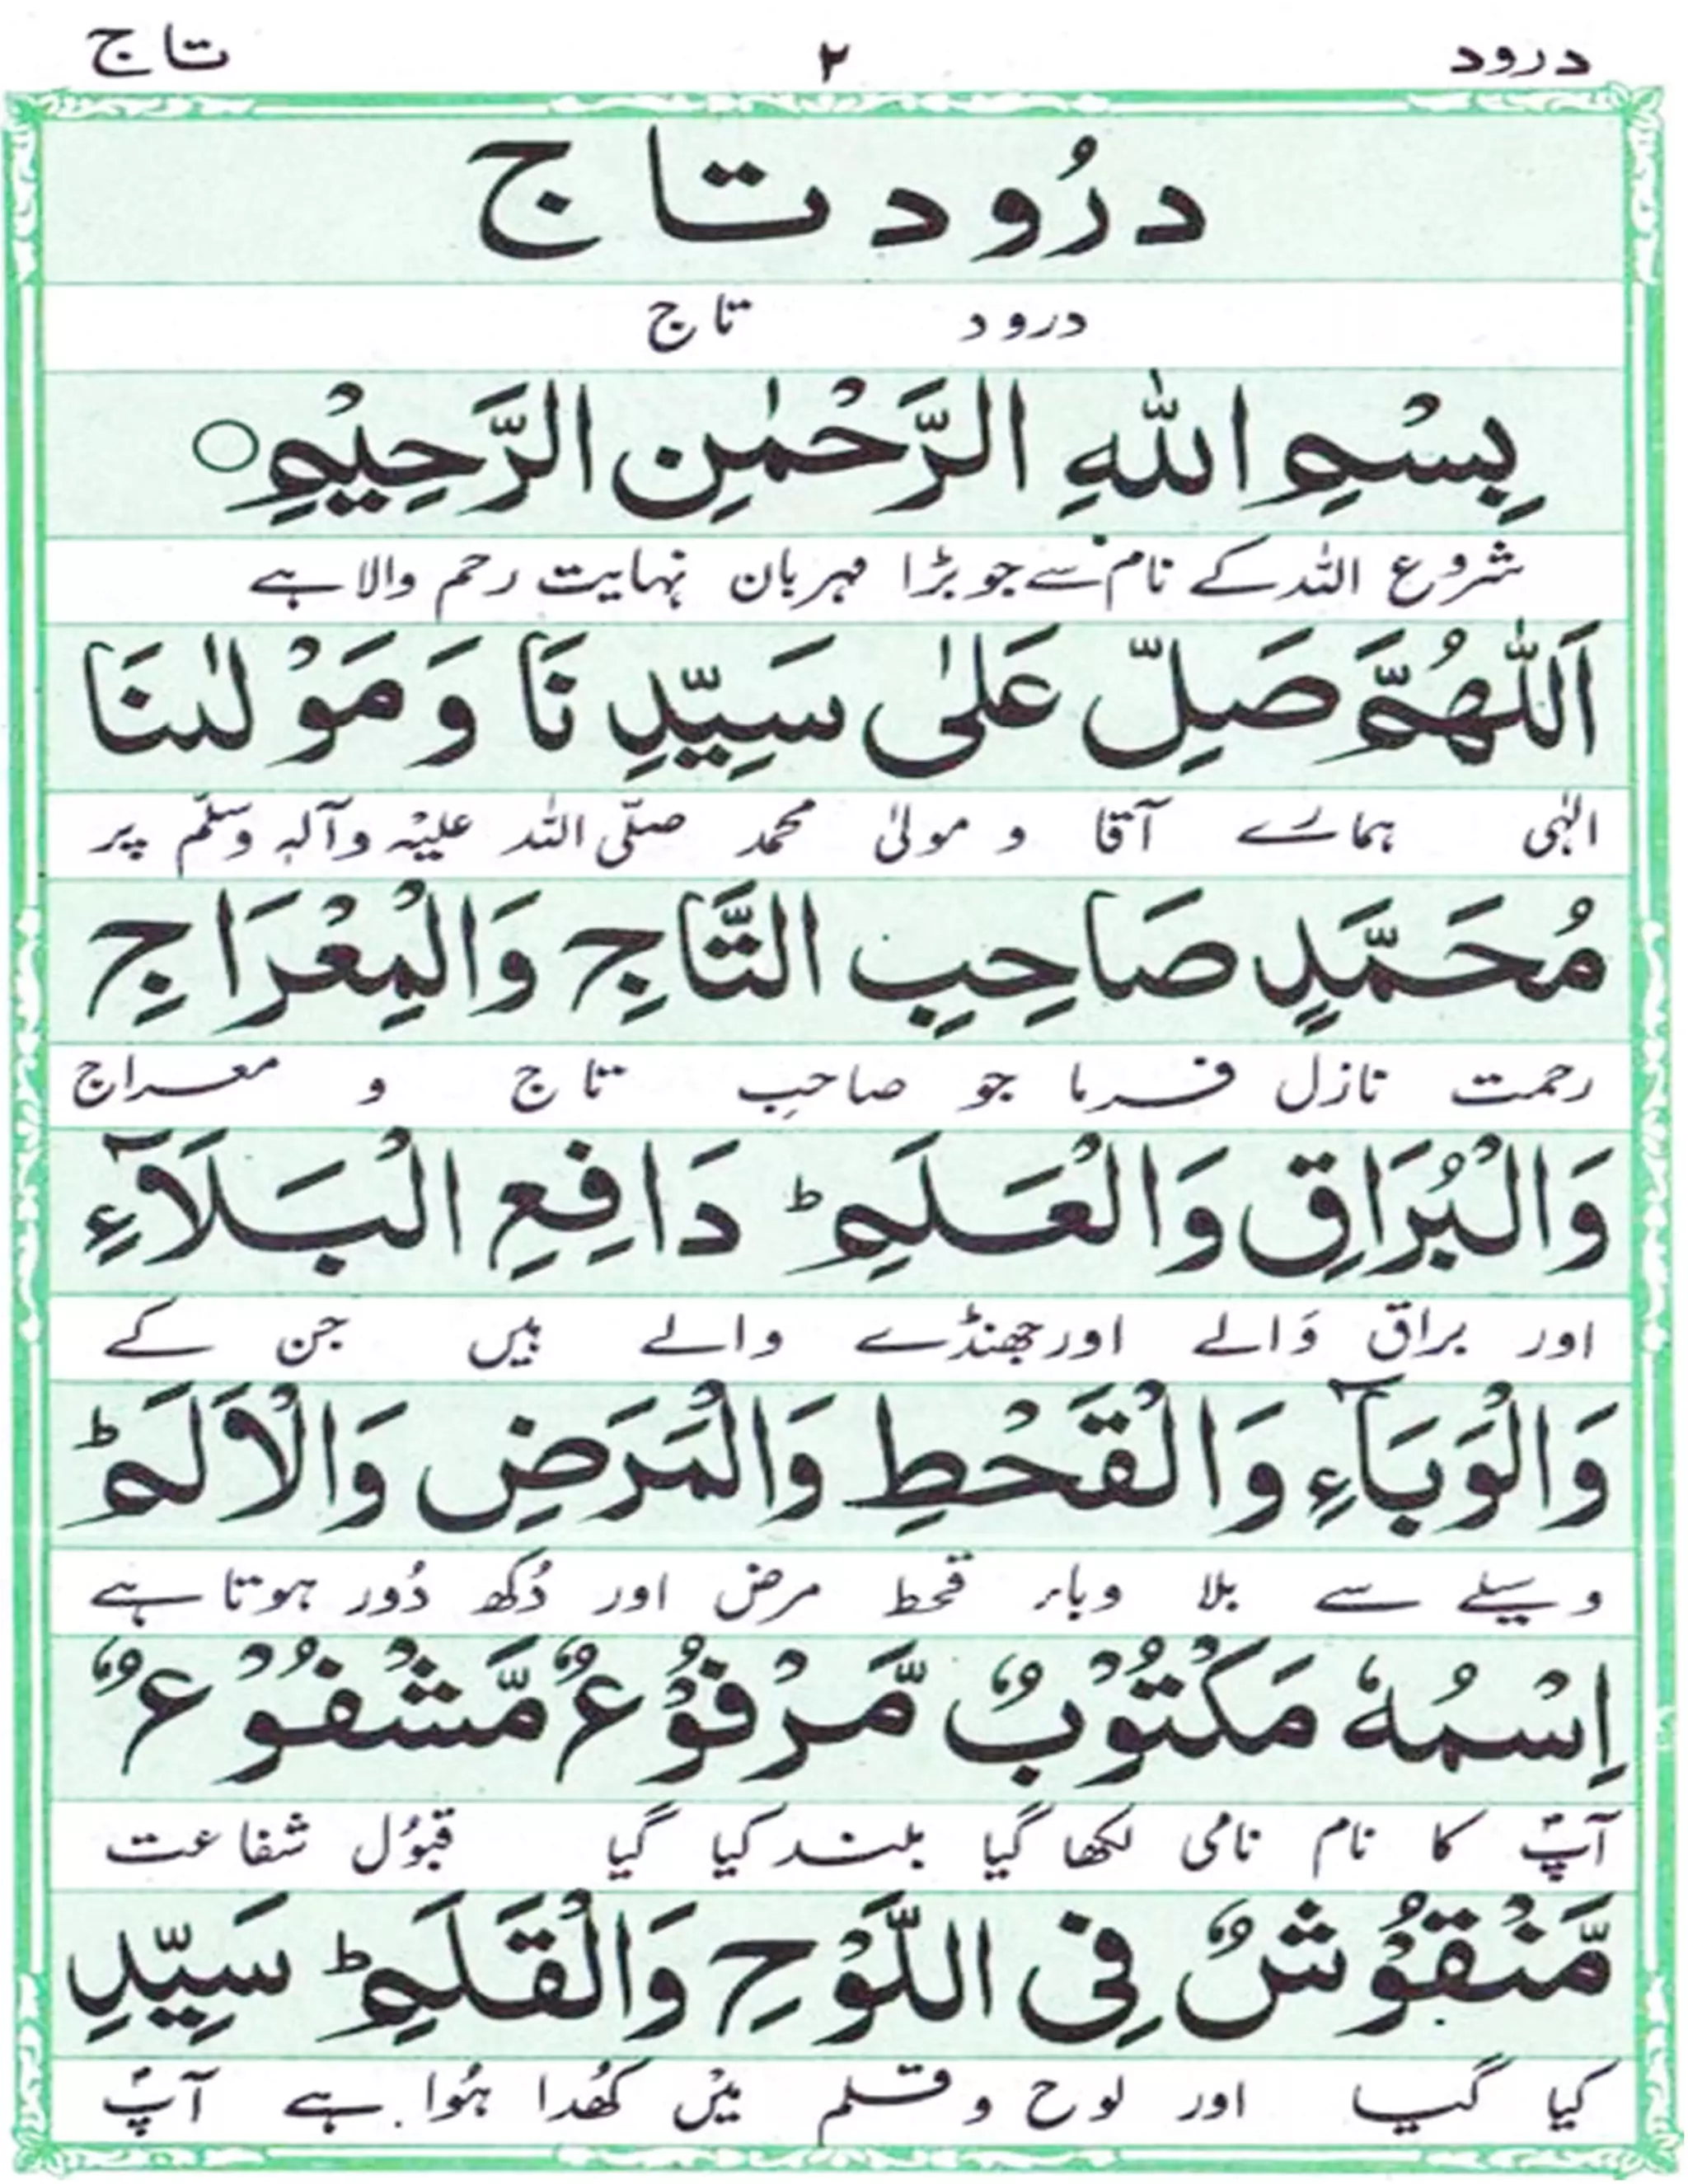 درود ۲ تاج
درُود تاج
درود تاج
بِسْمِ اللّٰهِ الرَّحْمٰنِ الرَّحِيْمِ ○
شروع اللہ کے نام سے جو بڑا مہربان نہایت رحم والا ہے
اَللّٰهُمَّ صَلِّ عَلٰى سَيِّدِنَا وَمَوْلٰىنَا
الٰہی ہمارے آقا و مولیٰ محمد صلّی اللہ علیہ وآلہٖ وسلّم پر
مُحَمَّدٍ صَاحِبِ التَّاجِ وَالْمِعْرَاجِ
رحمت نازل فرما جو صاحبِ تاج و معراج
وَالْبُرَاقِ وَالْعَلَمِ ؕ دَافِعِ الْبَلَآءِ
اور براق والے اور جھنڈے والے ہیں جن کے
وَالْوَبَآءِ وَالْقَحْطِ وَالْمَرَضِ وَالْاَلَمِ ؕ
وسیلے سے بلا وباء قحط مرض اور دُکھ دُور ہوتا ہے
اِسْمُهٗ مَكْتُوْبٌ مَّرْفُوْعٌ مَّشْفُوْعٌ
آپؐ کا نام نامی لکھا گیا بلند کیا گیا قبُول شفاعت
مَّنْقُوْشٌ فِى اللَّوْحِ وَالْقَلَمِ ؕ سَيِّدِ
کیا گیا اور لوح و قلم میں کھُدا ہُوا ہے آپؐ